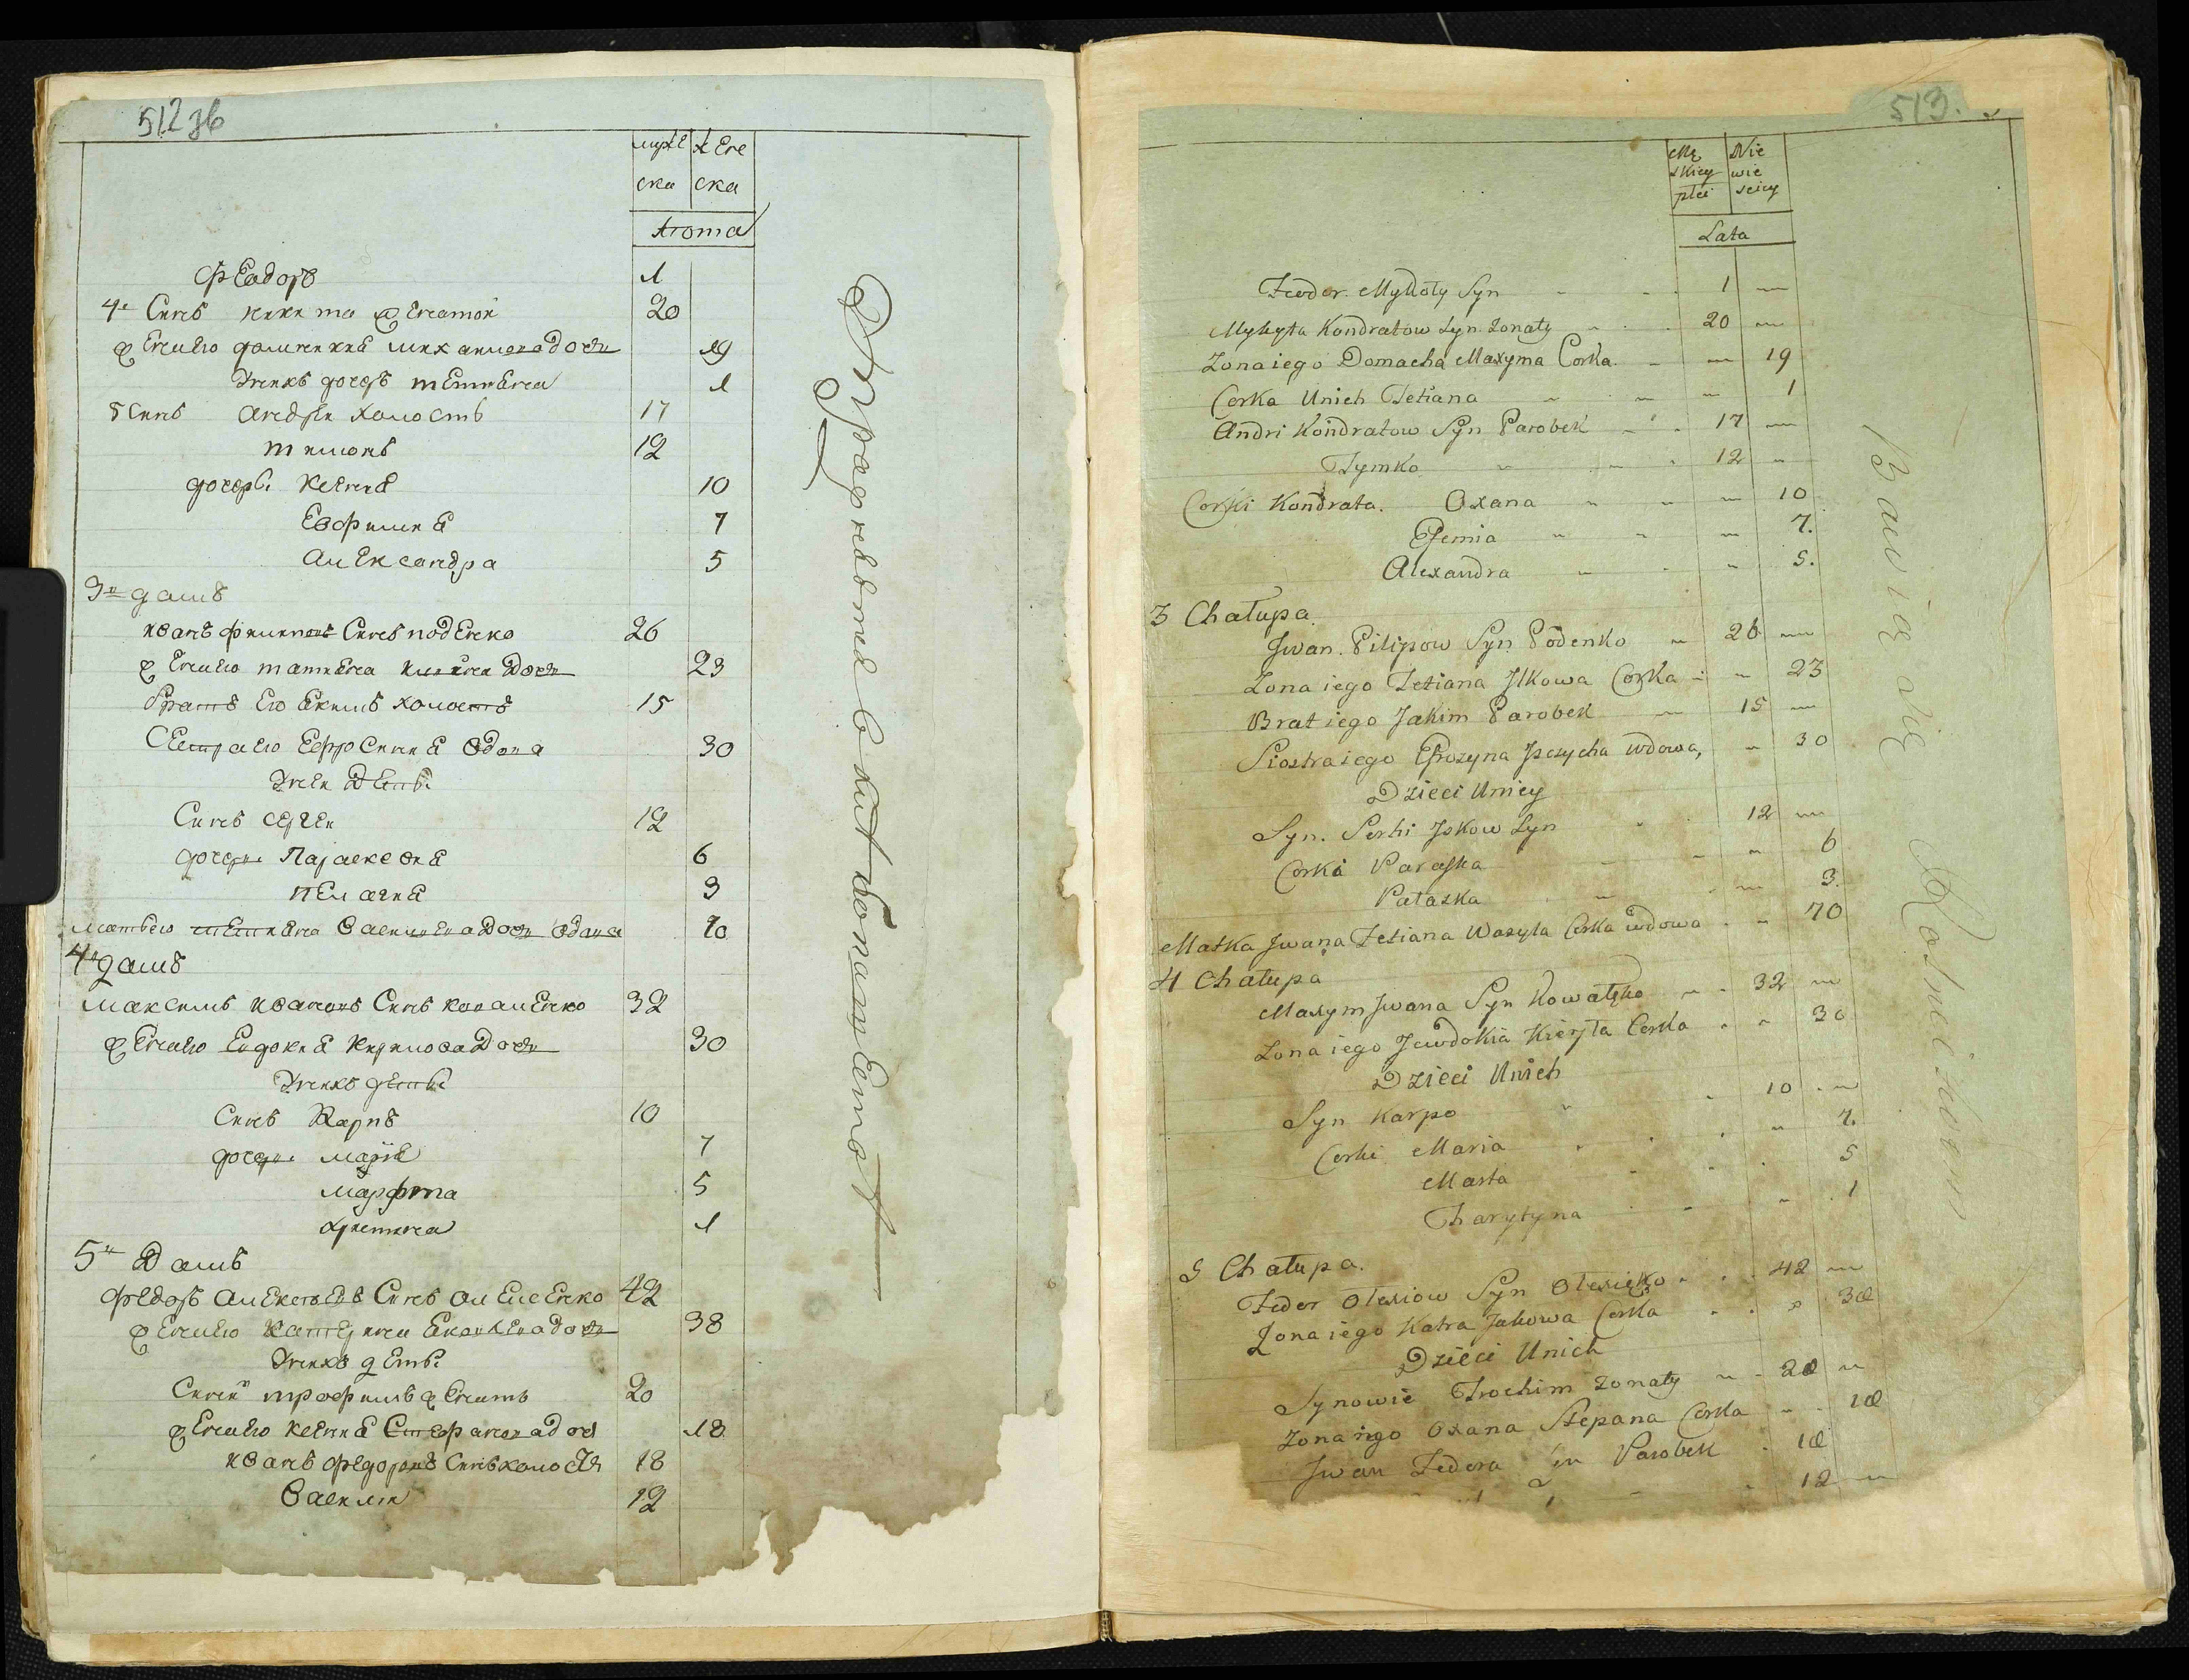 512 зв
мужеска женеска
лѣта
Феодоръ 1
4й Синъ Никита женатой 20
женаЕго домникия михаилова дочь 19
Унихъ дочеръ тетияна 1
5 Синъ андрей холостъ 17
тимошъ 12
дочеры Ксения 10
Евфимия 7
александра 5
3й домъ
иванъ филиповъ Синъ поденко 26
женаЕго татияна дочь 23
братъ Его Екимъ холостъ 15
Сестра Его Ефросиния вдова 30
Унеи Дети
Синъ сергей 12
дочери Параскевия 6
пелагия 3
мать Его тетияна Василева Дочь вдова 70
4й домъ
максимъ ивановъ Синъ коваленко 32
женаЕго Евдокия Кирилова Дочь 30
Унихъ дети
Синъ Карпъ 10
дочери мария 7
марфта 5
христина 1
5й Домъ
федоръ алексеевъ Синъ алексенко 42
женаЕго Катерина дочь 38
Унихъ дети
Синъ трофимъ женатъ 20
женаЕго Ксения Стефанова доч 18
иванъ федоровъ Синъ холостъ 18
Василий 12
513.
Męskiey płei Niewiesciey
Lata
Feodor Mykoły Syn 1
Mykyta Kondratow Syn Zonaty 20
Zona iego Domacha Maxyma Corka 19
Corka Unich Tetiana 1
Andri Kondratow Syn Parobek 17
Tymko 12
Corki Kondrata. Oxana 10
Efemia 7.
Alexandra 5.
3 Chałupa
Jwan Pilipow Syn Podenko 26
Zona iego Tetiana Jlkowa Corka 23
Brat iego Jakim Parobek 15
Siostra iego Efrozyna wdowa, 30
Dzieci Uniey
Syn. Serhi Jskow Syn 12
Corka Paraska 6
Palazka 3.
Matka Jwana Tetiana Wasyla Corka wdowa 70
4 Chałupa
Maxym Jwana Syn Kowalęko 32
Zona iego Jewdokia Kieryła Corka 30
Dzieci Unich
Syn Karpo 10
Corki Maria 7.
Marta 5
Charytyna 1
5 Chałupa.
Fedor Olexiow Syn Olexięko 42
Zona iego Katra Jakowa Corka 38
Dzieci Unich
Synowie Trochim zonaty 20
Zona iego Oxana Stepana Corka 18
Jwan Fedora Syn Parobek 18
12